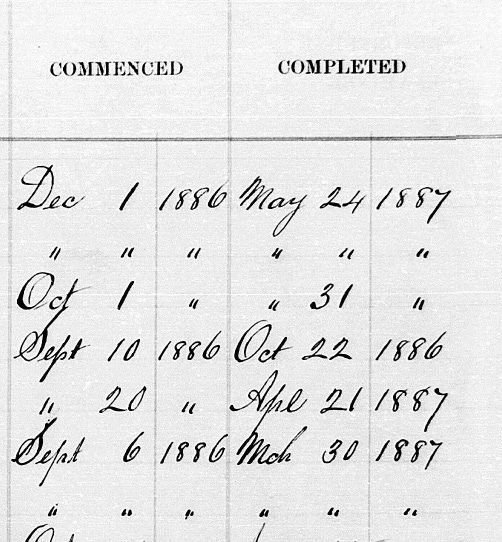 COMMENCED COMPLETED
Dec 1 1886 May 24 1887
" " " " " "
Oct 1 " " 31 "
Sept 10 1886 Oct 22 1886
" 20 " Apl 21 1887
Sept 6 1886 Mch 30 1887
" " " " " "